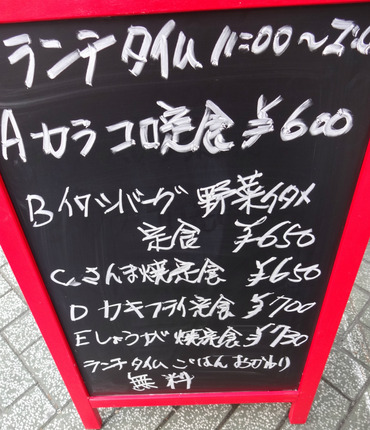 ランチタイム 11:00～2:0
Aカラコロ定食 ¥600
Bイワシバーグ 野菜イタメ
定食 ¥650
C.さんま焼定食 ¥650
D カキフライ定食 ¥700
Eしょうが焼定食 ¥730
ランチタイム ごはんおかわり
無料